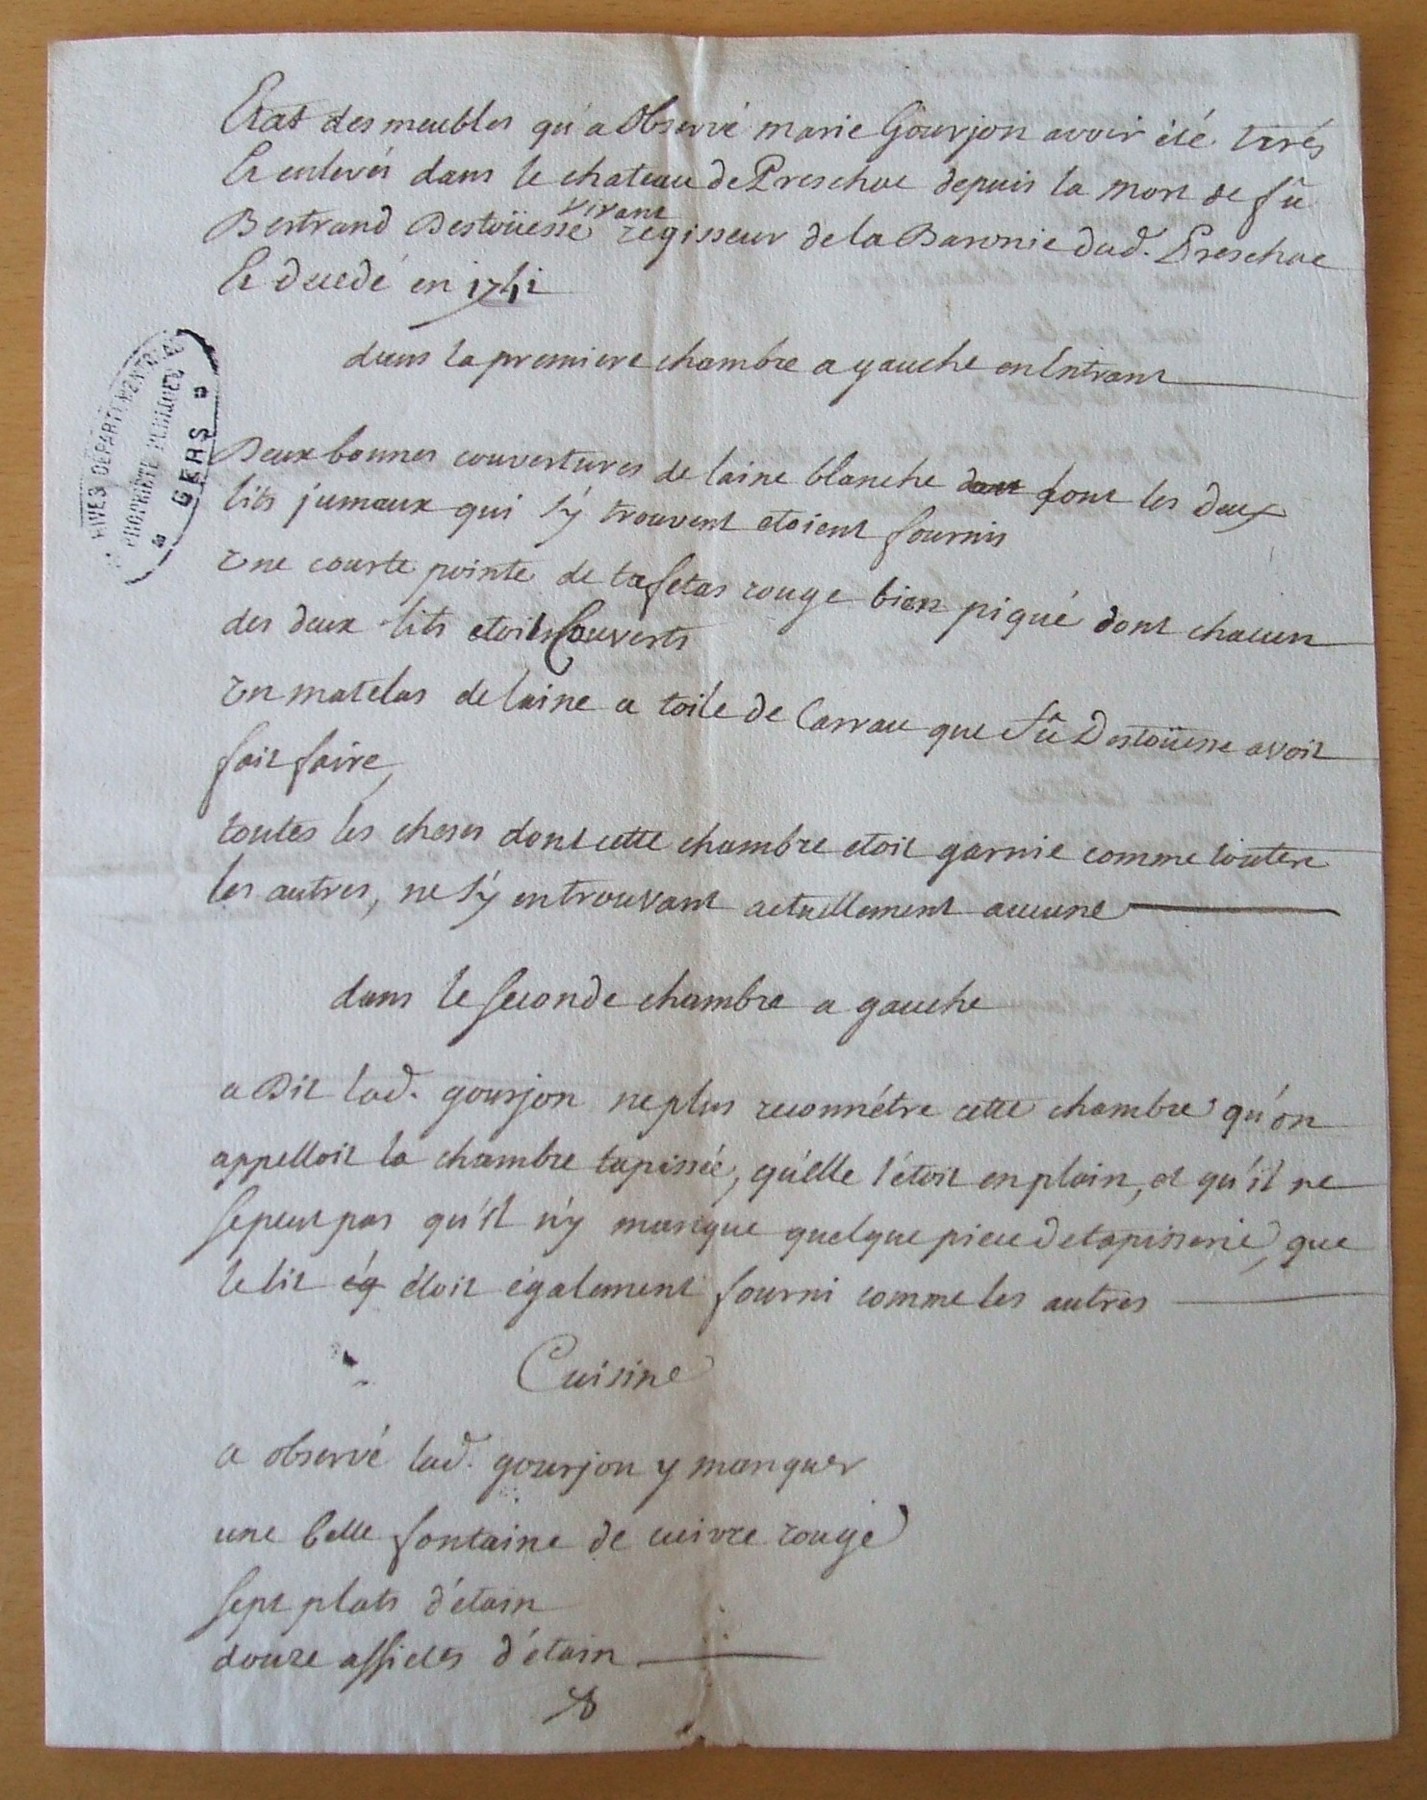 Etat des meubles qu'a Observé marie Gourjon avoir été tirés
Et enlevés dans le chateau de Preschac depuis la mort de fû
Bertrand Destoüesse vivant regisseur de la Baronie dud. Preschac
Et decedé en
dans la premiere chambre a gauche en Entrant
ARCHIVES DÉPARTEMENTALES
PROPRIÉTÉ PUBLIQUE
GERS
Deux bonnes couvertures de laine blanche dont les deux
lits jumaux qui s'y trouvent etoient fournis
Une courte pointe de tafetas rouge bien piqué dont chacun
des deux lits etoient Couverts
Un matelas de laine a toile de Carrau que fû Destoüesse avoit
fait faire,
toutes les choses dont cette chambre etoit garnie comme toutes
les autres, ne s'y en trouvant actuellement aucune
dans le seconde chambre a gauche
a Dit lad. gourjon ne plus reconnétre cette chambre qu'on
appelloit la chambre tapissée, qu'elle l'étoit en plain, et qu'il ne
se peut pas qu'il n'y manque quelque piece de tapisserie, que
le lit ég étoit également fourni comme les autres
Cuisine
a observé lad. gourjon y manquer
une belle fontaine de cuivre rouge
sept plats d'étain
douze assietes d'étain